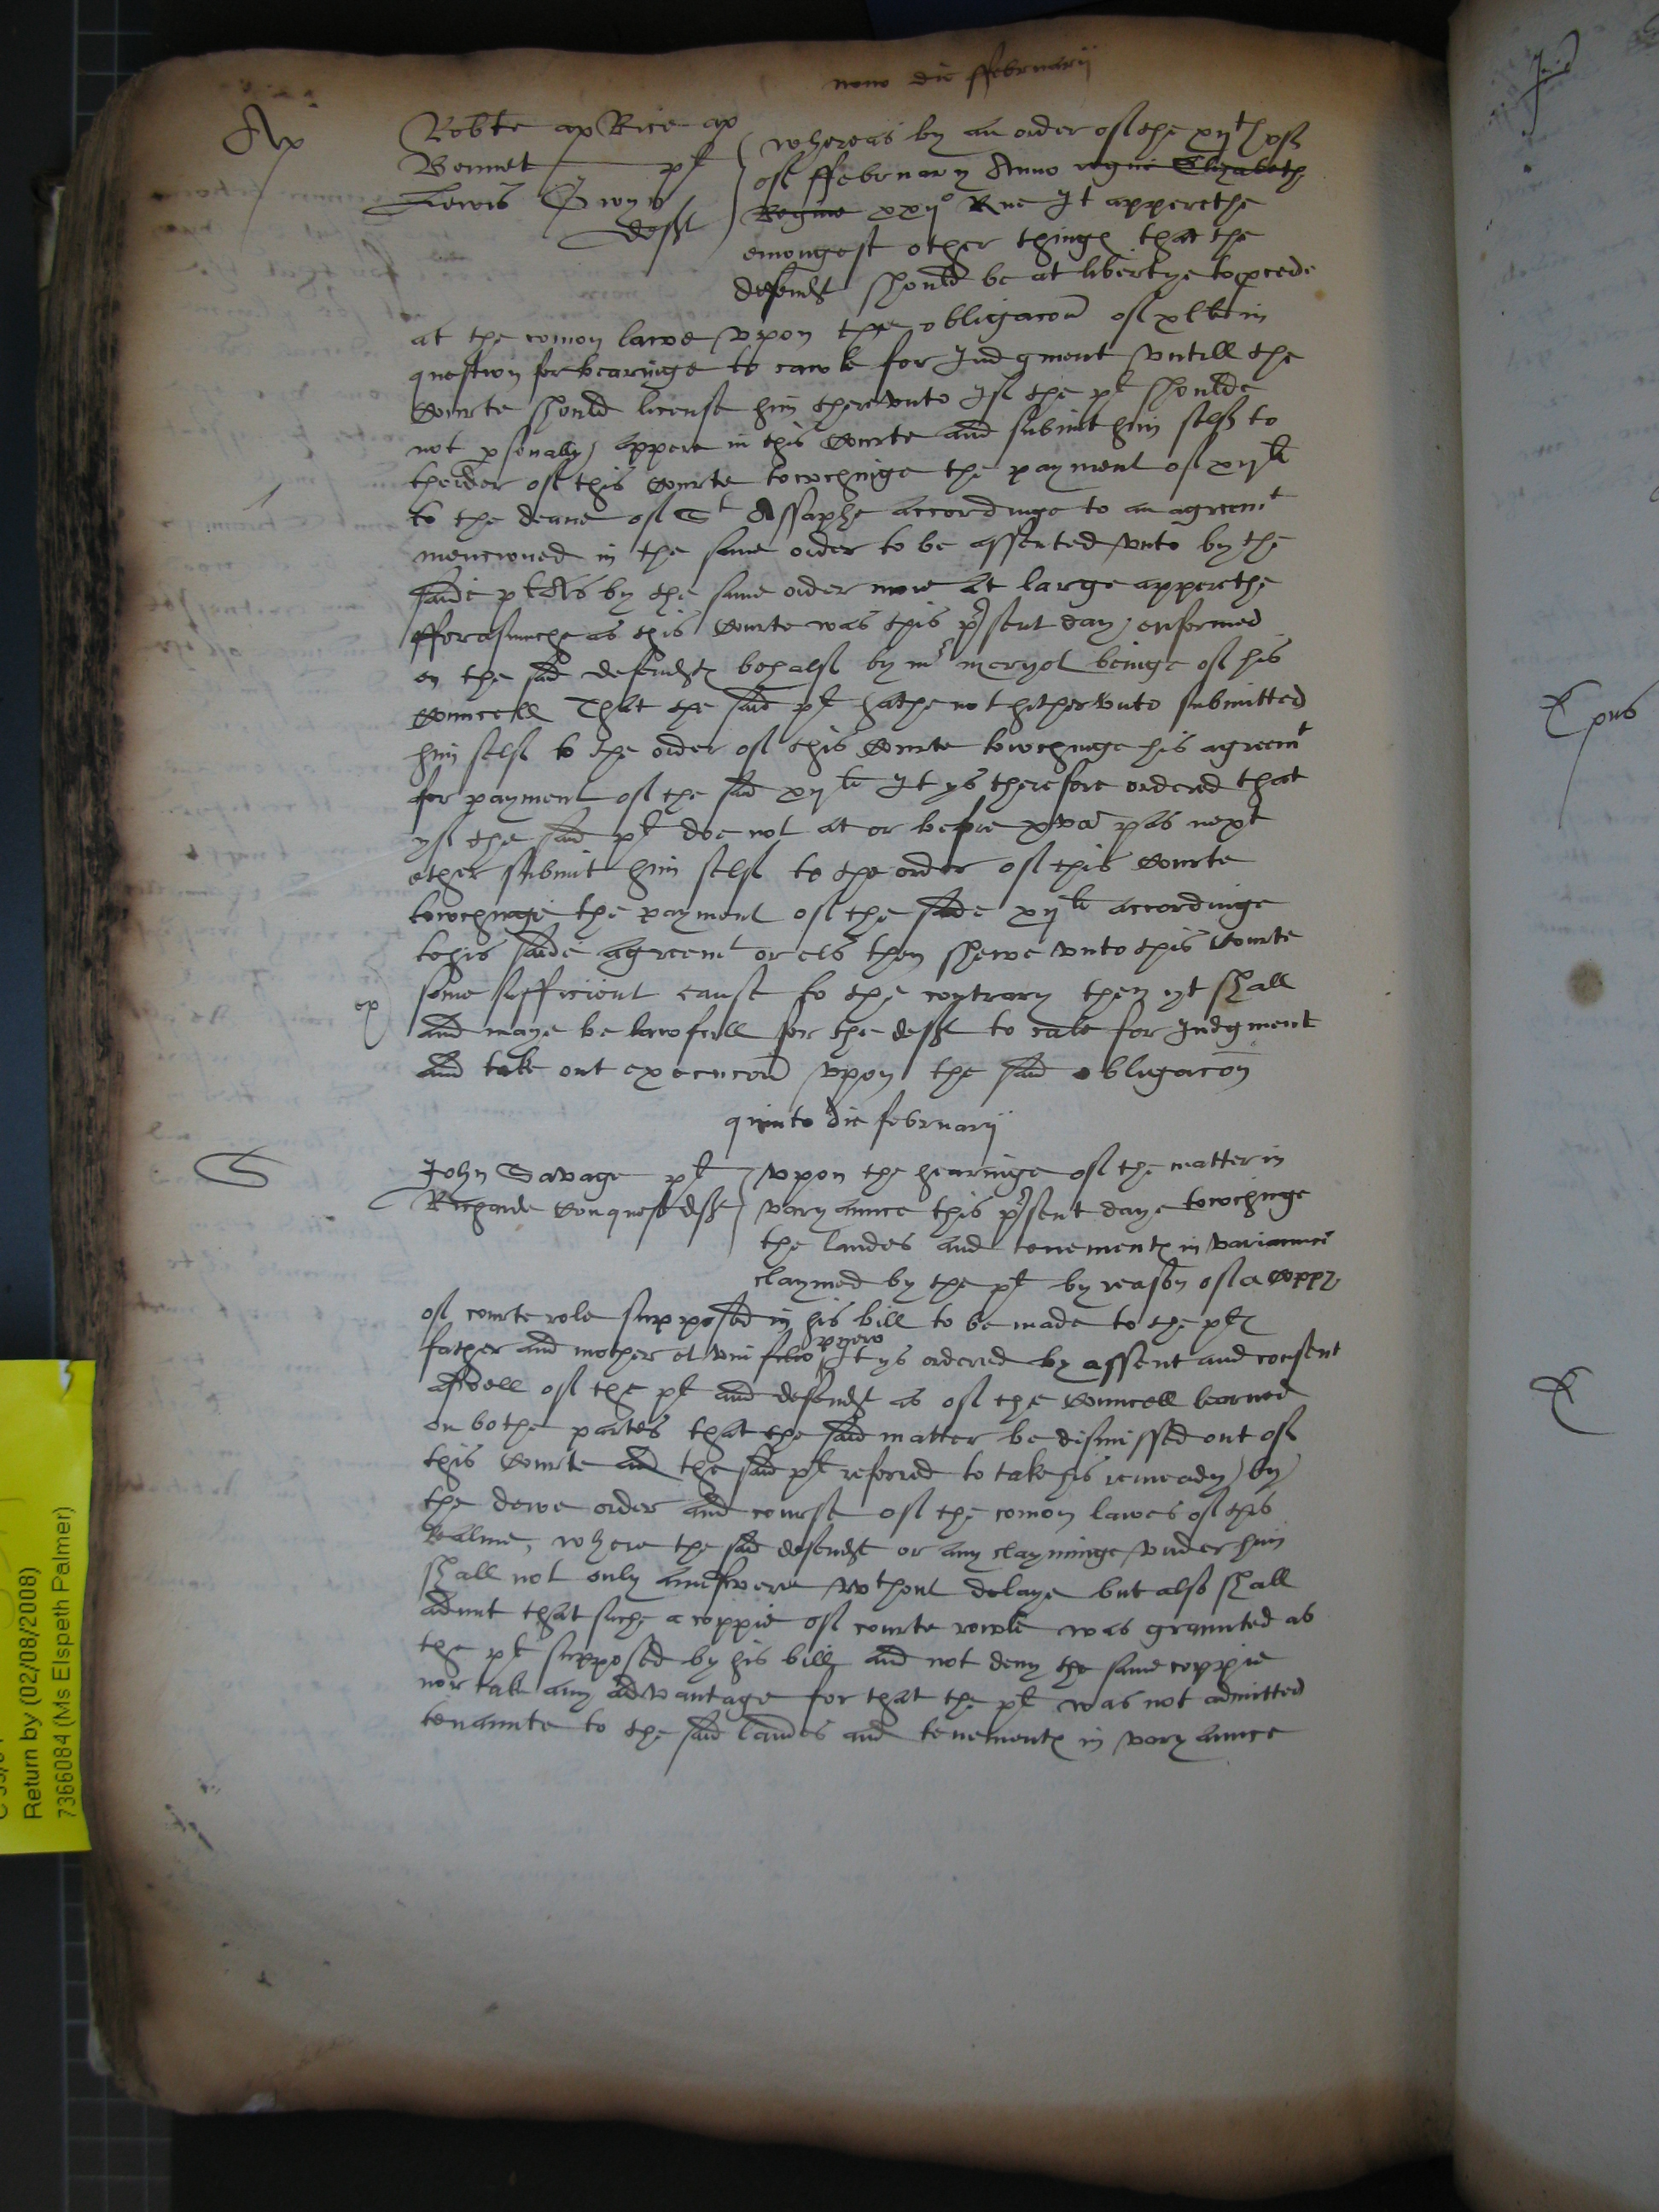 nono die ffebruarij
Ap
Robte ap Rice ap
Bennet pl
Lewis Gwyn
deff
whereas by an order of the xijth of
of ffebruary Anno regni Elizabeth
Regine xxijo Rne It apperethe
emongest other things that the
defendt should be at libertye to procede
at the comon lawe vpon the obligacon of xl li in
question forbearinge to cawle for Judgment vntill the
Courte should license him therevnto If the pl shoulde
not psonally appere in this Courte and submit him self to
thorder of this Courte towchinge the payment of xij li
to the deane of St Assaphe accordinge to an agreemt
mencioned in the same order to be assented vnto by the
saide pl As by the same order more at large apperethe
fforasmuche as this Courte was this psent day enformed
on the said defendts behalf by mr meryot beinge of his
Councell That the said pl hathe not hithervnto submitted
him self to the order of this Courte towchinge his agreemt
for payment of the said xij li It ys therefore ordered that
yf the said pl doe not at or before xva pas next
ether submit him self to the order of this Courte
towchinge the payment of the saide xij li accordinge
to his saide agreemt or els then shewe vnto this Courte
ex
some sufficient cause to the contrary then yt shall
and maye be lawfull for the deft to cale for Judgment
and take out execucon vpon the said obligacon
quinto die februarij
S
John Savage pl
Richarde Conquest deft
vpon the hearinge of the matter in
varyaunce this psent daye towchinge
the landes and tenements in variaunce
claymed by the pl by reason of a Coppy
of courte role supposed in his bill to be made to the pls
father and mother et vni filio It ys ordered by assent and consent
aswell of the pl and defendt as of the Councell learned
on bothe partes that the said matter be dismissed out of
this Courte and the said pl referred to take his remeady by
the dewe order and course of the comon lawes of this
Realme, where the said defendt or any clayminge vnder him
shall not only aunswere wthout delaye but also shall
admit that suche a coppie of courte rowle was graunted as
the pl supposed by his bill and not deny the same coppie
nor take any advantage for that the pl was not admitted
tenaunte to the said landes and tenements in varyaunce
Return by (02/08/2008)
7366084 (Ms Elspeth Palmer)